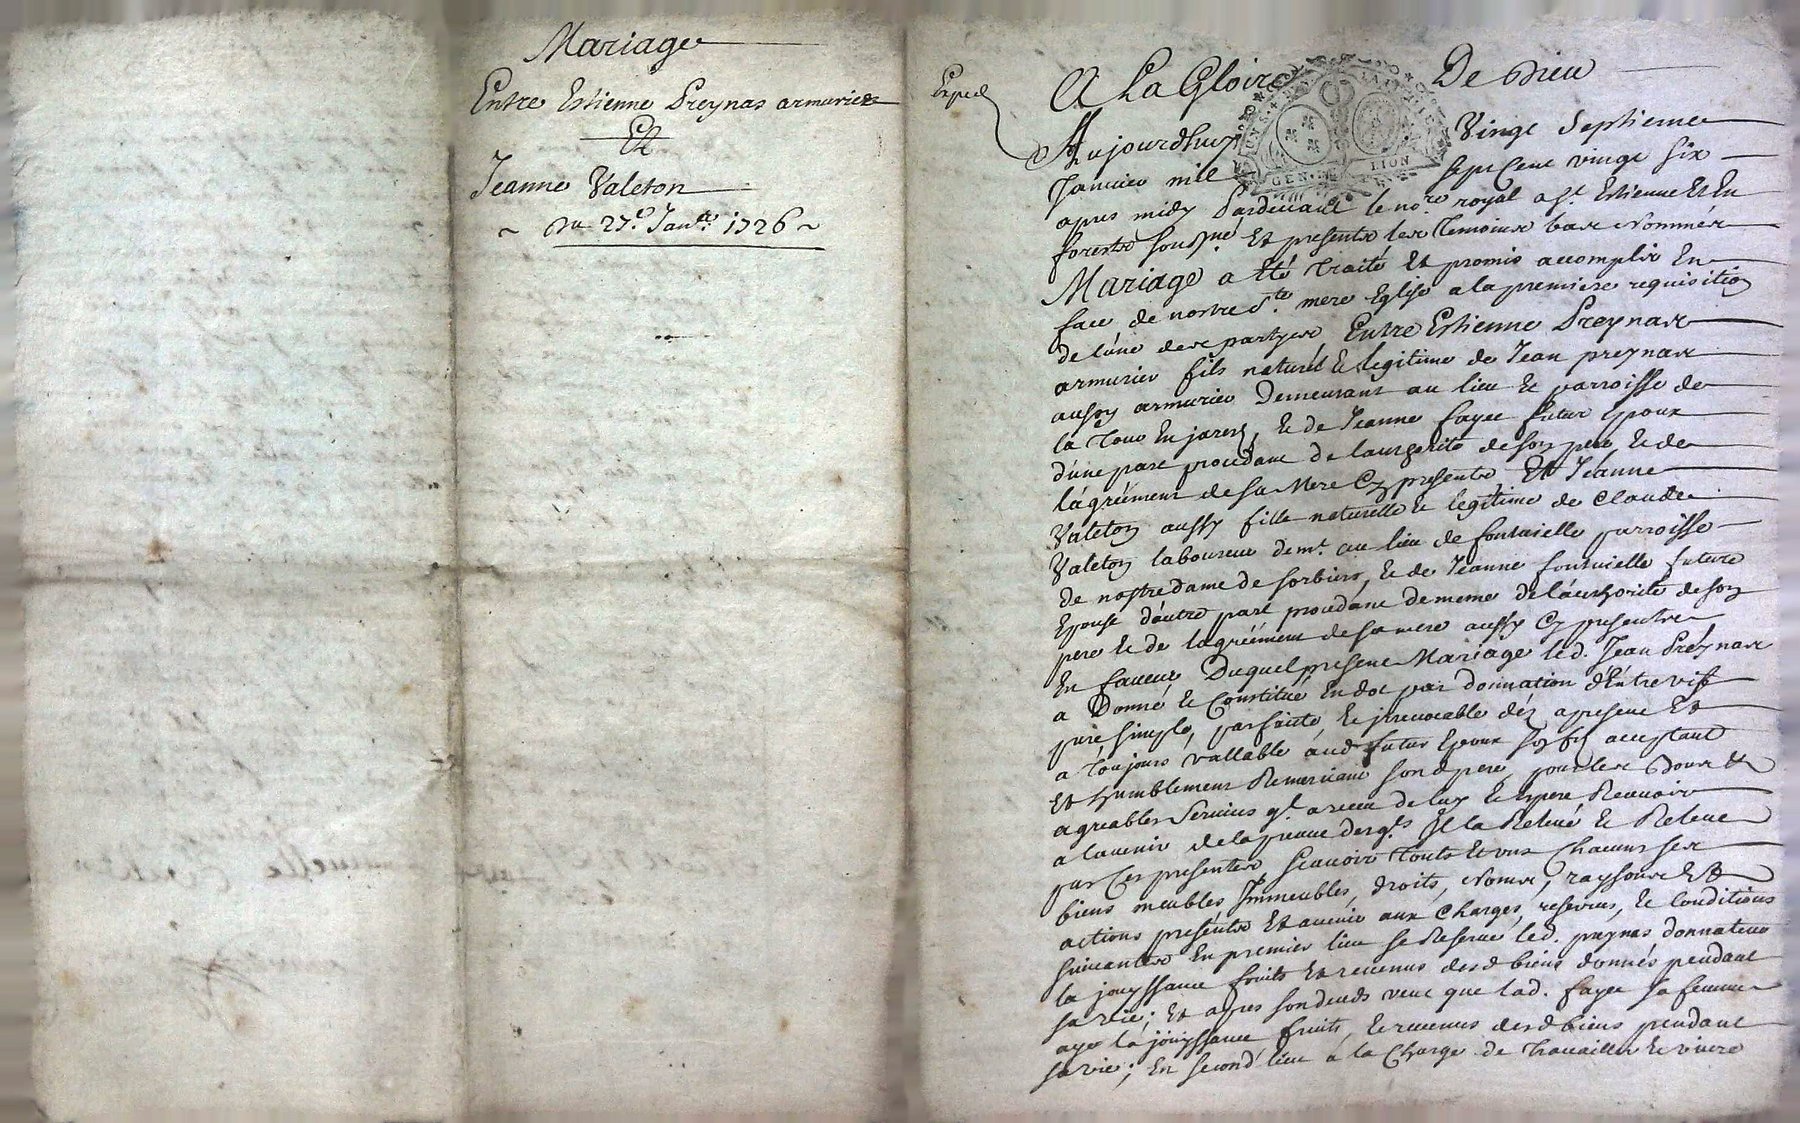 Mariage
Entre Estienne Preynas armurier
Et
Jeanne Valeton
~ Du 27e. Janer. 1726 ~
Exped
A La Gloire De Dieu
Aujourdhuy Vingt Septieme
Janvier mil sept Cent vingt six
apres midy Pardevant le nore. royal a St. Estienne Et En
forestz soussné Et presents les Temoins bas Nommez
Mariage a été Traité Et promis accomplir En
face de nostre Ste. mere Eglise a la premiere requisition
de l'une des partyes Entre Estienne Preynas
armurier fils naturel & legitime de Jean preynas
aussy armurier Demeurant au lieu et parroisse de
la Tour En jarest, & de Jeanne fayee futur Epoux
d'une part procedant de l'authorité de son pere & de
l'agréément de sa Mere Cy presents, Et Jeanne
Valeton aussy fille naturelle & legitime de Claude
Valeton laboureur demt. au lieu de fontvielle parroisse
de nostre dame de sorbiers, & de Jeanne fontvielle future
Epouse d'autre part procedant de meme de l'authorité de son
pere & de l'agréément de sa mere aussy Cy presents
En faveur Duquel present Mariage led. Jean Préynas
a Donné & Constitué En dot par donnation d'Entre vifs
pure simple, parfaite & jrrevocable dez apresent Et
a Toujours vallable aud futur Epoux son fils acceptant
Et humblement Remerciant sond pere pour les bons &
agreables Services ql. a receu de luy & Espere Recevoir
a l'avenir de la preuve desqls. Il la Relevé & Releve
par Ces presentes Scavoir Touts Et uns Chacuns ses
biens meubles Immeubles, droits, Noms, raysons Et
actions presents Et avenir aux Charges, reserves, & Conditions
suivantes En premier lieu se Reserve led. preynas donnateur
la jouyssance fruits Et revenus desd biens donnés pendant
sa vie; Et apres son deceds veut que lad. fayee sa femme
aye la jouyssance fruits, & revenus desd biens pendant
sa vie; En second lieu a la Charge de Travailler & vivre